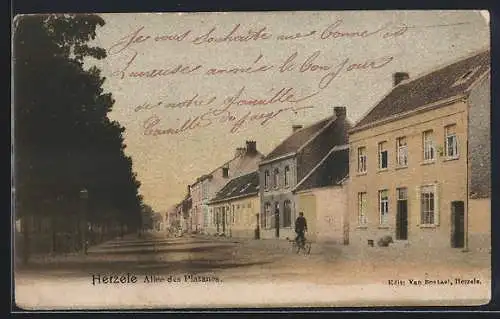 Je vous souhaite une bonne et
heureuse année le bonjour
de notre famille
Camille de
Herzele Allée des Platanes.
Edit: Van Herzele.